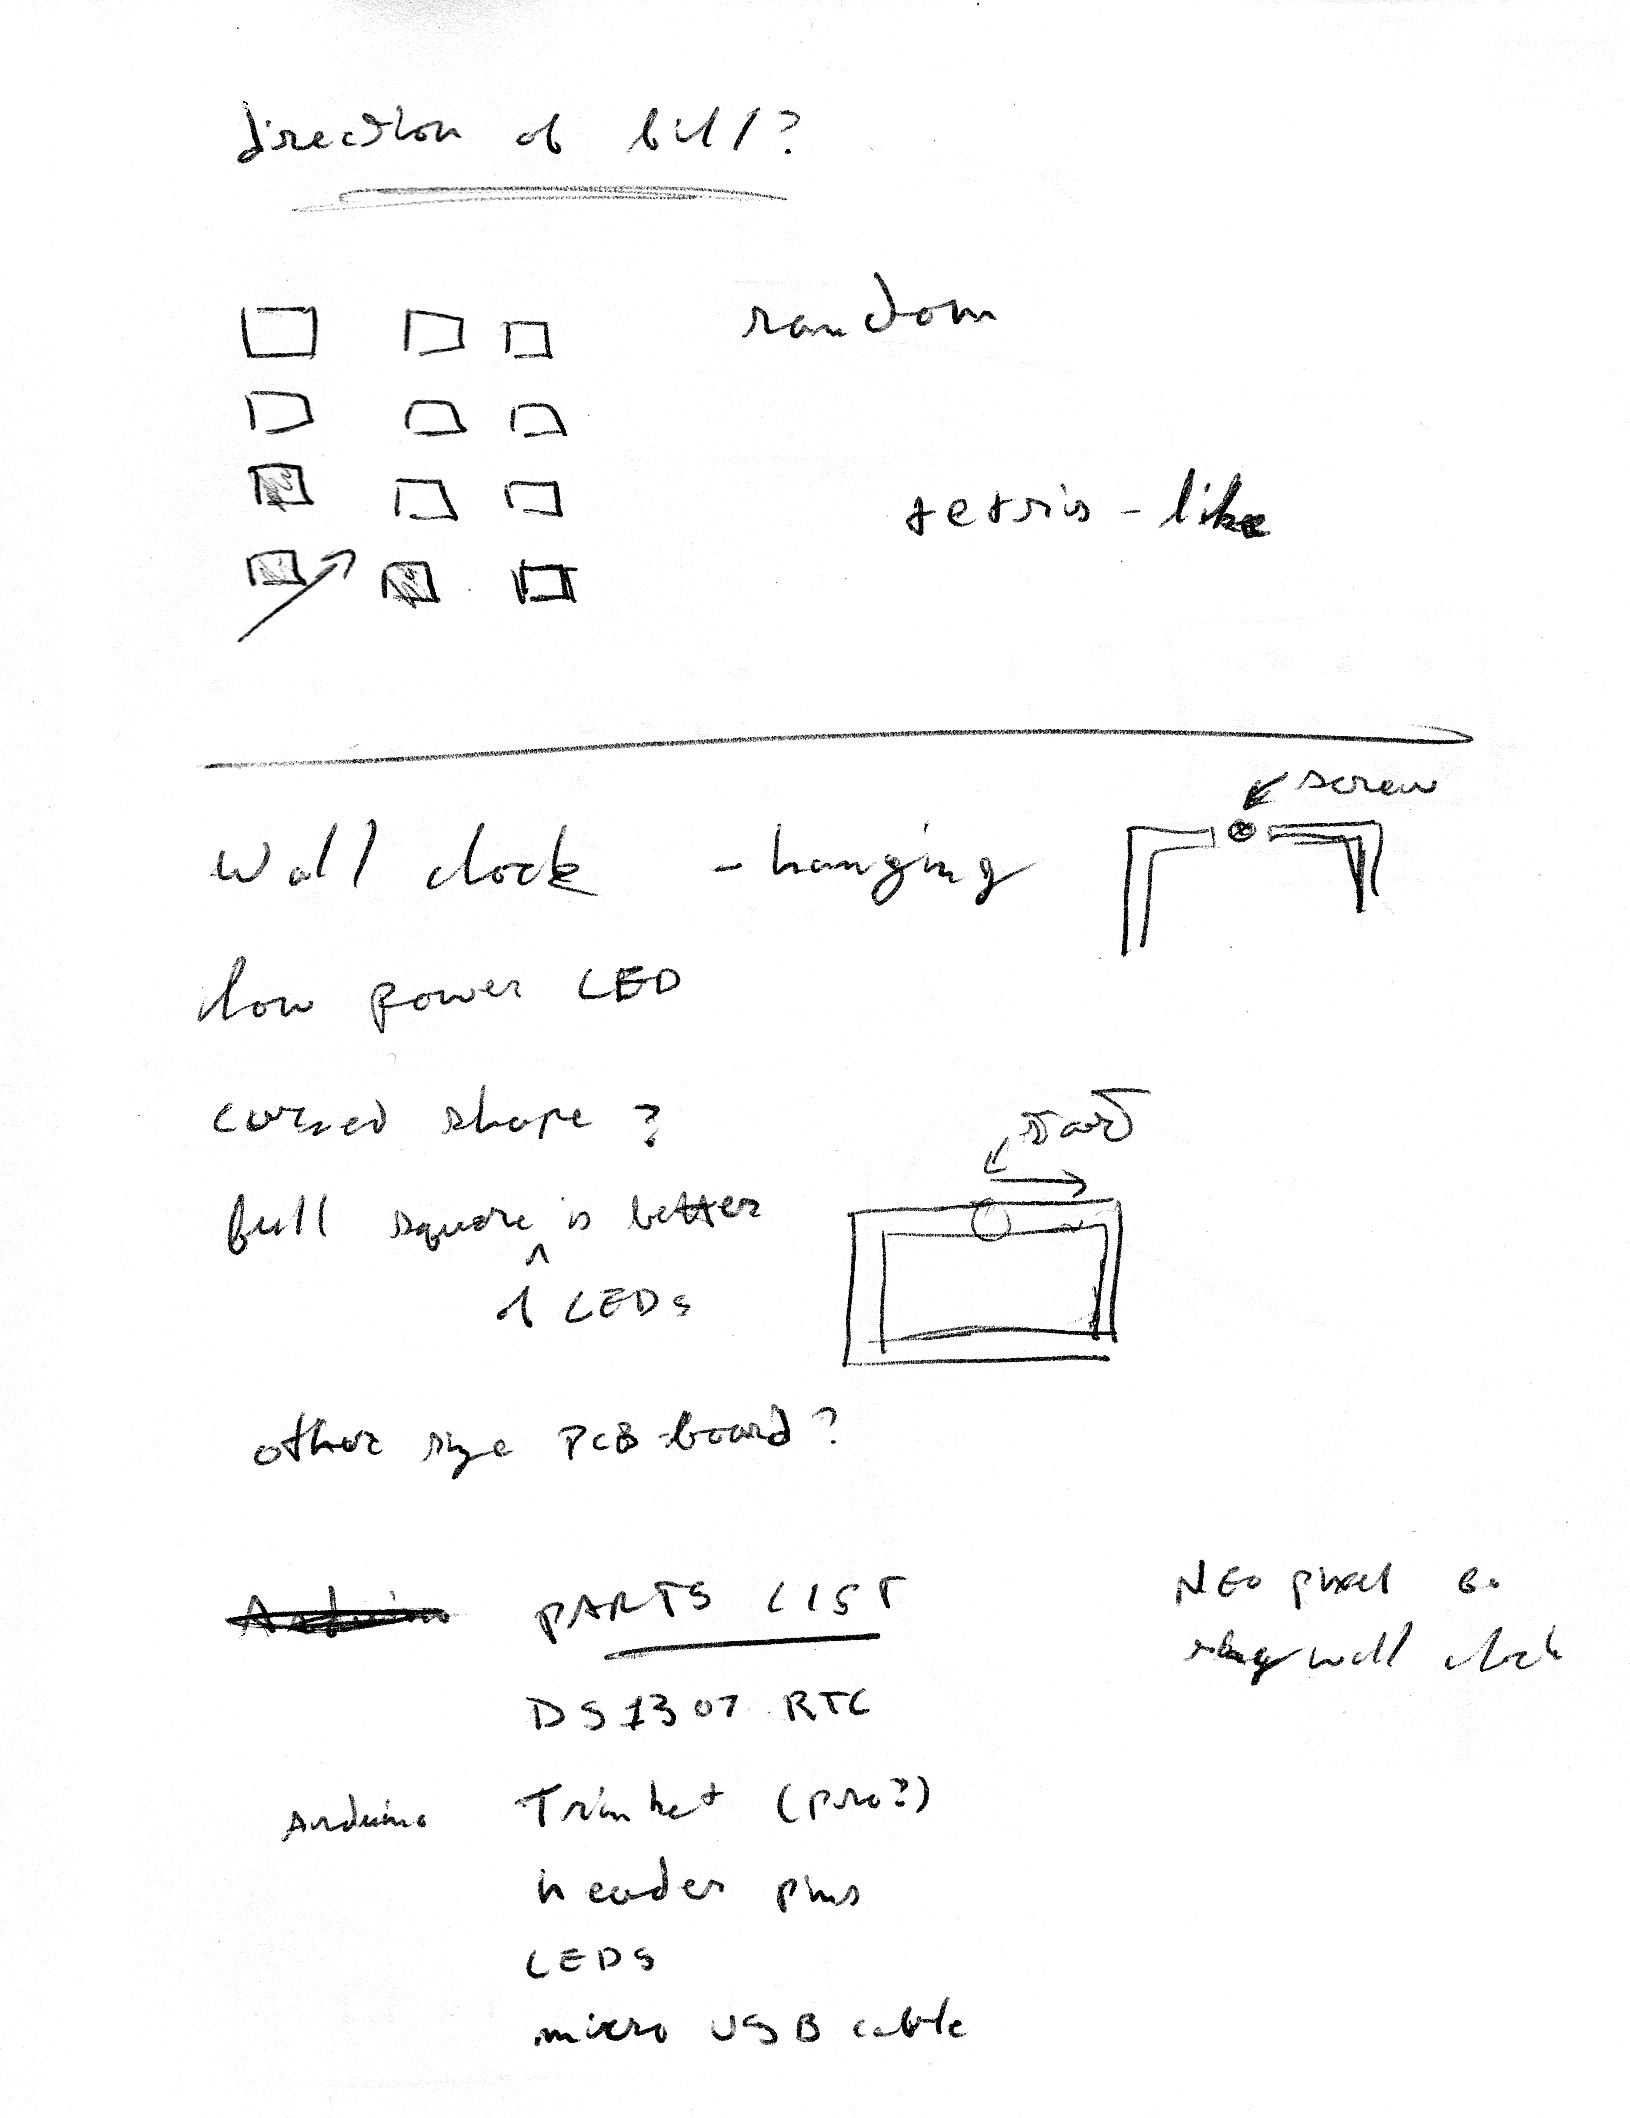 direction of fill?
random
tetris-like
screw
Wall clock - hanging
low power LED
curved shape?
start
full square is better
^
LEDs
other size PCB-board?
Arduino PARTS LIST
NEO pixel 60
ring wall clock
DS1307 RTC
Arduino Trinket (pro?)
header pins
LEDS
micro USB cable